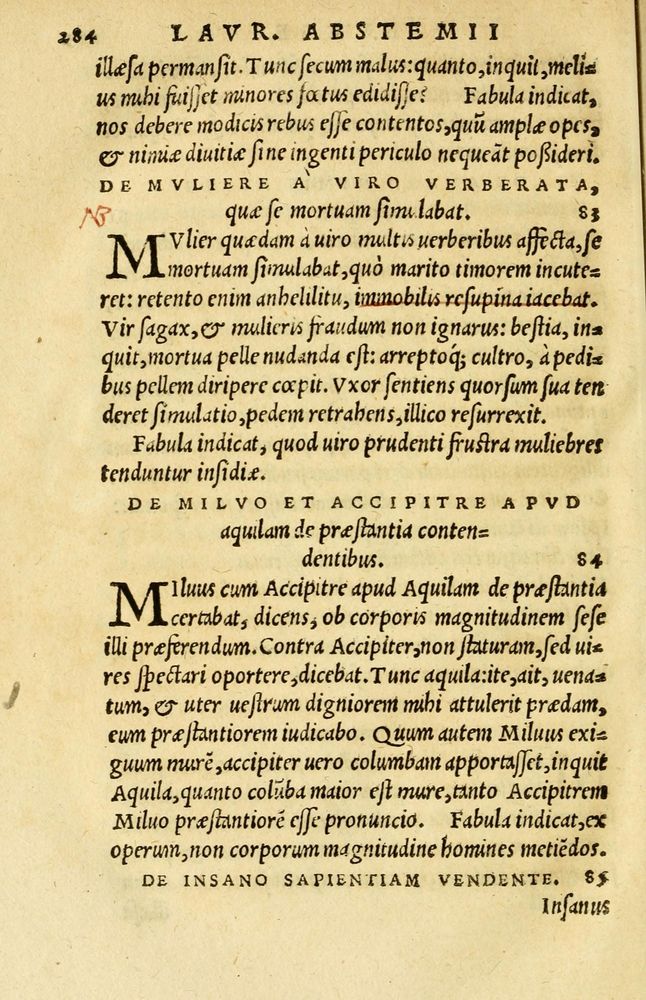 284 LAVR. ABSTEMII
illæsa permansit. Tunc secum malus: quanto, inquit, meli=
us mihi fuisset minores fœtus edidisse? Fabula indicat,
nos debere modicis rebus esse contentos, quũ amplæ opes,
& nimiæ diuitiæ sine ingenti periculo nequeãt possideri.
DE MVLIERE À VIRO VERBERATA,
NB quæ se mortuam simulabat. 83
MVlier quædam à uiro multis uerberibus affecta, se
mortuam simulabat, quò marito timorem incute=
ret: retento enim anhelitu, immobilis resupina iacebat.
Vir sagax, & mulieris fraudum non ignarus: bestia, in=
quit, mortua pelle nudanda est: arreptoq; cultro, à pedi=
bus pellem diripere cœpit. Vxor sentiens quorsum sua ten
deret simulatio, pedem retrahens, illico resurrexit.
Fabula indicat, quod uiro prudenti frustra muliebres
tenduntur insidiæ.
DE MILVO ET ACCIPITRE APVD
aquilam de præstantia conten=
dentibus. 84
MIluus cum Accipitre apud Aquilam de præstantia
certabat, dicens, ob corporis magnitudinem sese
illi præferendum. Contra Accipiter, non staturam, sed ui=
res spectari oportere, dicebat. Tunc aquila: ite, ait, uena=
tum, & uter uestrum digniorem mihi attulerit prædam,
eum præstantiorem iudicabo. Quum autem Miluus exi=
guum murẽ, accipiter uero columbam apportasset, inquit
Aquila, quanto colũba maior est mure, tanto Accipitrem
Miluo præstantiorẽ esse pronuncio. Fabula indicat, ex
operum, non corporum magnitudine homines metiẽdos.
DE INSANO SAPIENTIAM VENDENTE. 85
Insanus